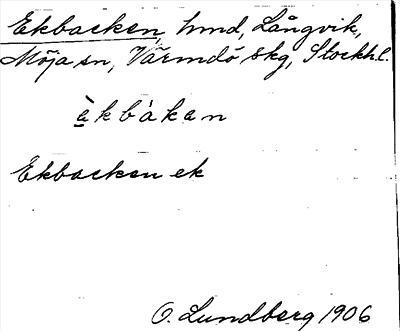 Ekbacken, hmd, Långvik,
Möja sn, Värmdö skg, Stockh.l.
èkbàkan
Ekbacken ek
O. Lundberg 1906